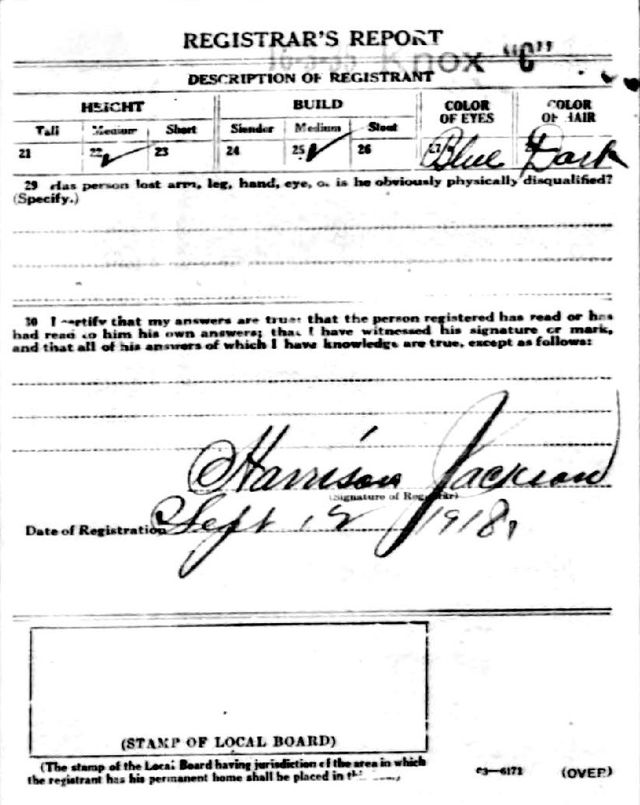 REGISTRAR'S REPORT
Knox "C"
DESCRIPTION OF REGISTRANT
HEIGHT BUILD COLOR OF EYES COLOR OF HAIR
Tall Medium Short Slender Medium Stout
21 22 ✓ 23 24 25 ✓ 26 27 Blue Dark
29 Has person lost arm, leg, hand, eye, or is he obviously physically disqualified?
(Specify.)
30 I certify that my answers are true; that the person registered has read or has
had read to him his own answers; that I have witnessed his signature or mark,
and that all of his answers of which I have knowledge are true, except as follows:
Harrison Jackson
(Signature of Registrar)
Date of Registration Sept 12 1918
(STAMP OF LOCAL BOARD)
(The stamp of the Local Board having jurisdiction of the area in which
the registrant has his permanent home shall be placed in
03—6171 (OVER)